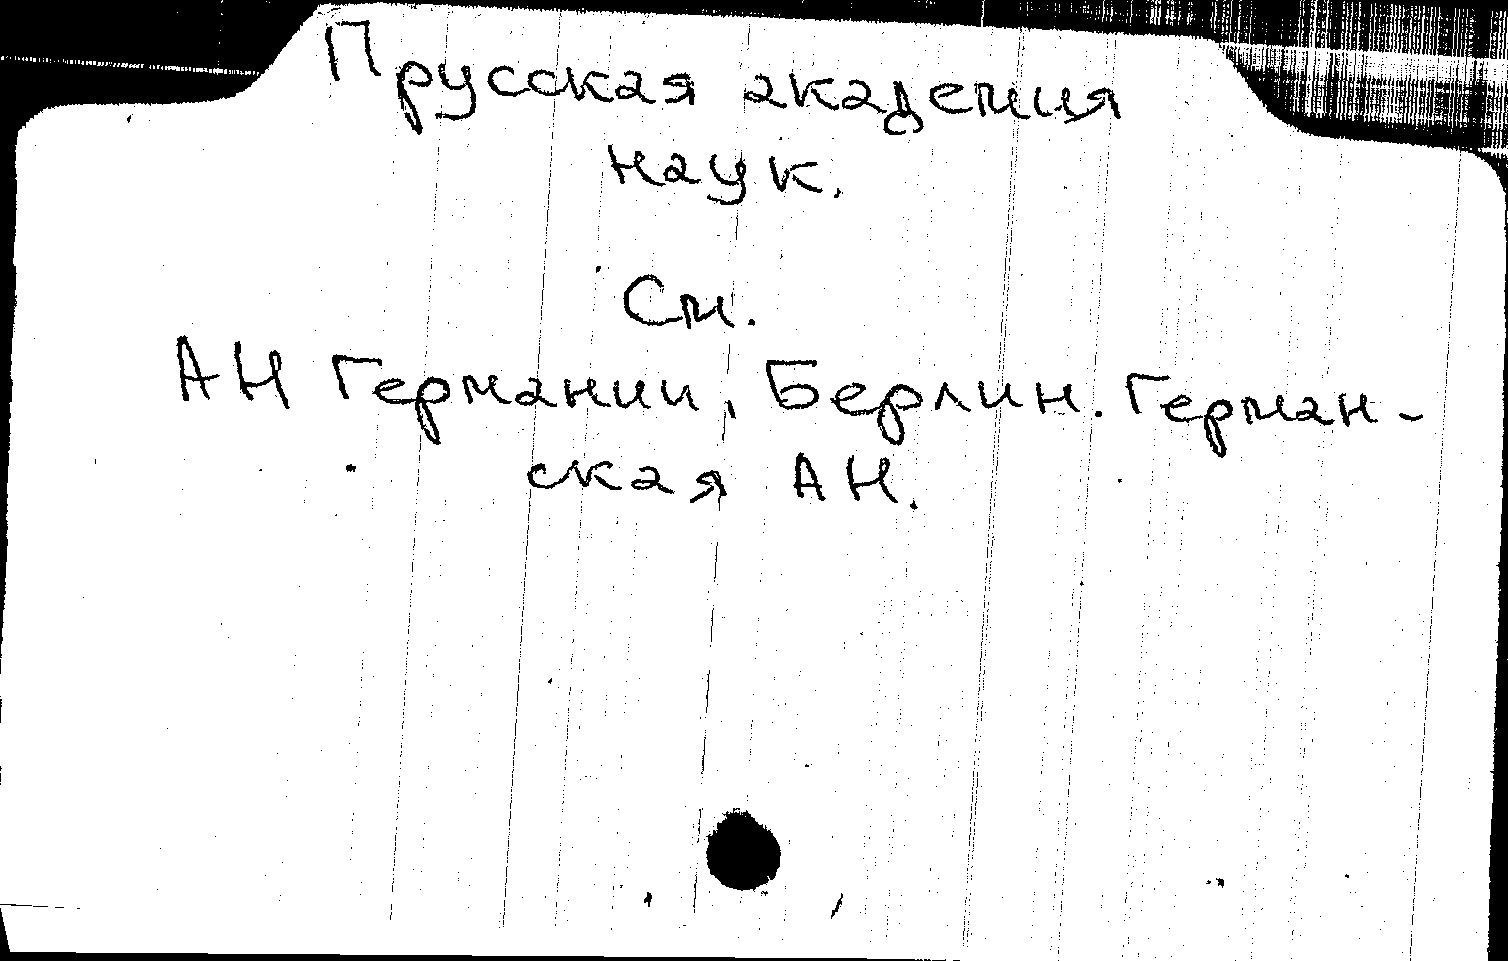 Прусская академия
наук.
См.
АН Германии, Берлин. Герман-
ская АН.